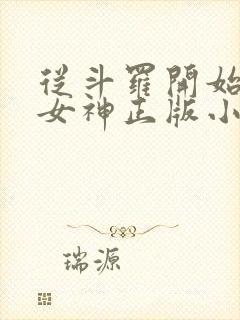 從斗羅開始
女神正版小
瑞源